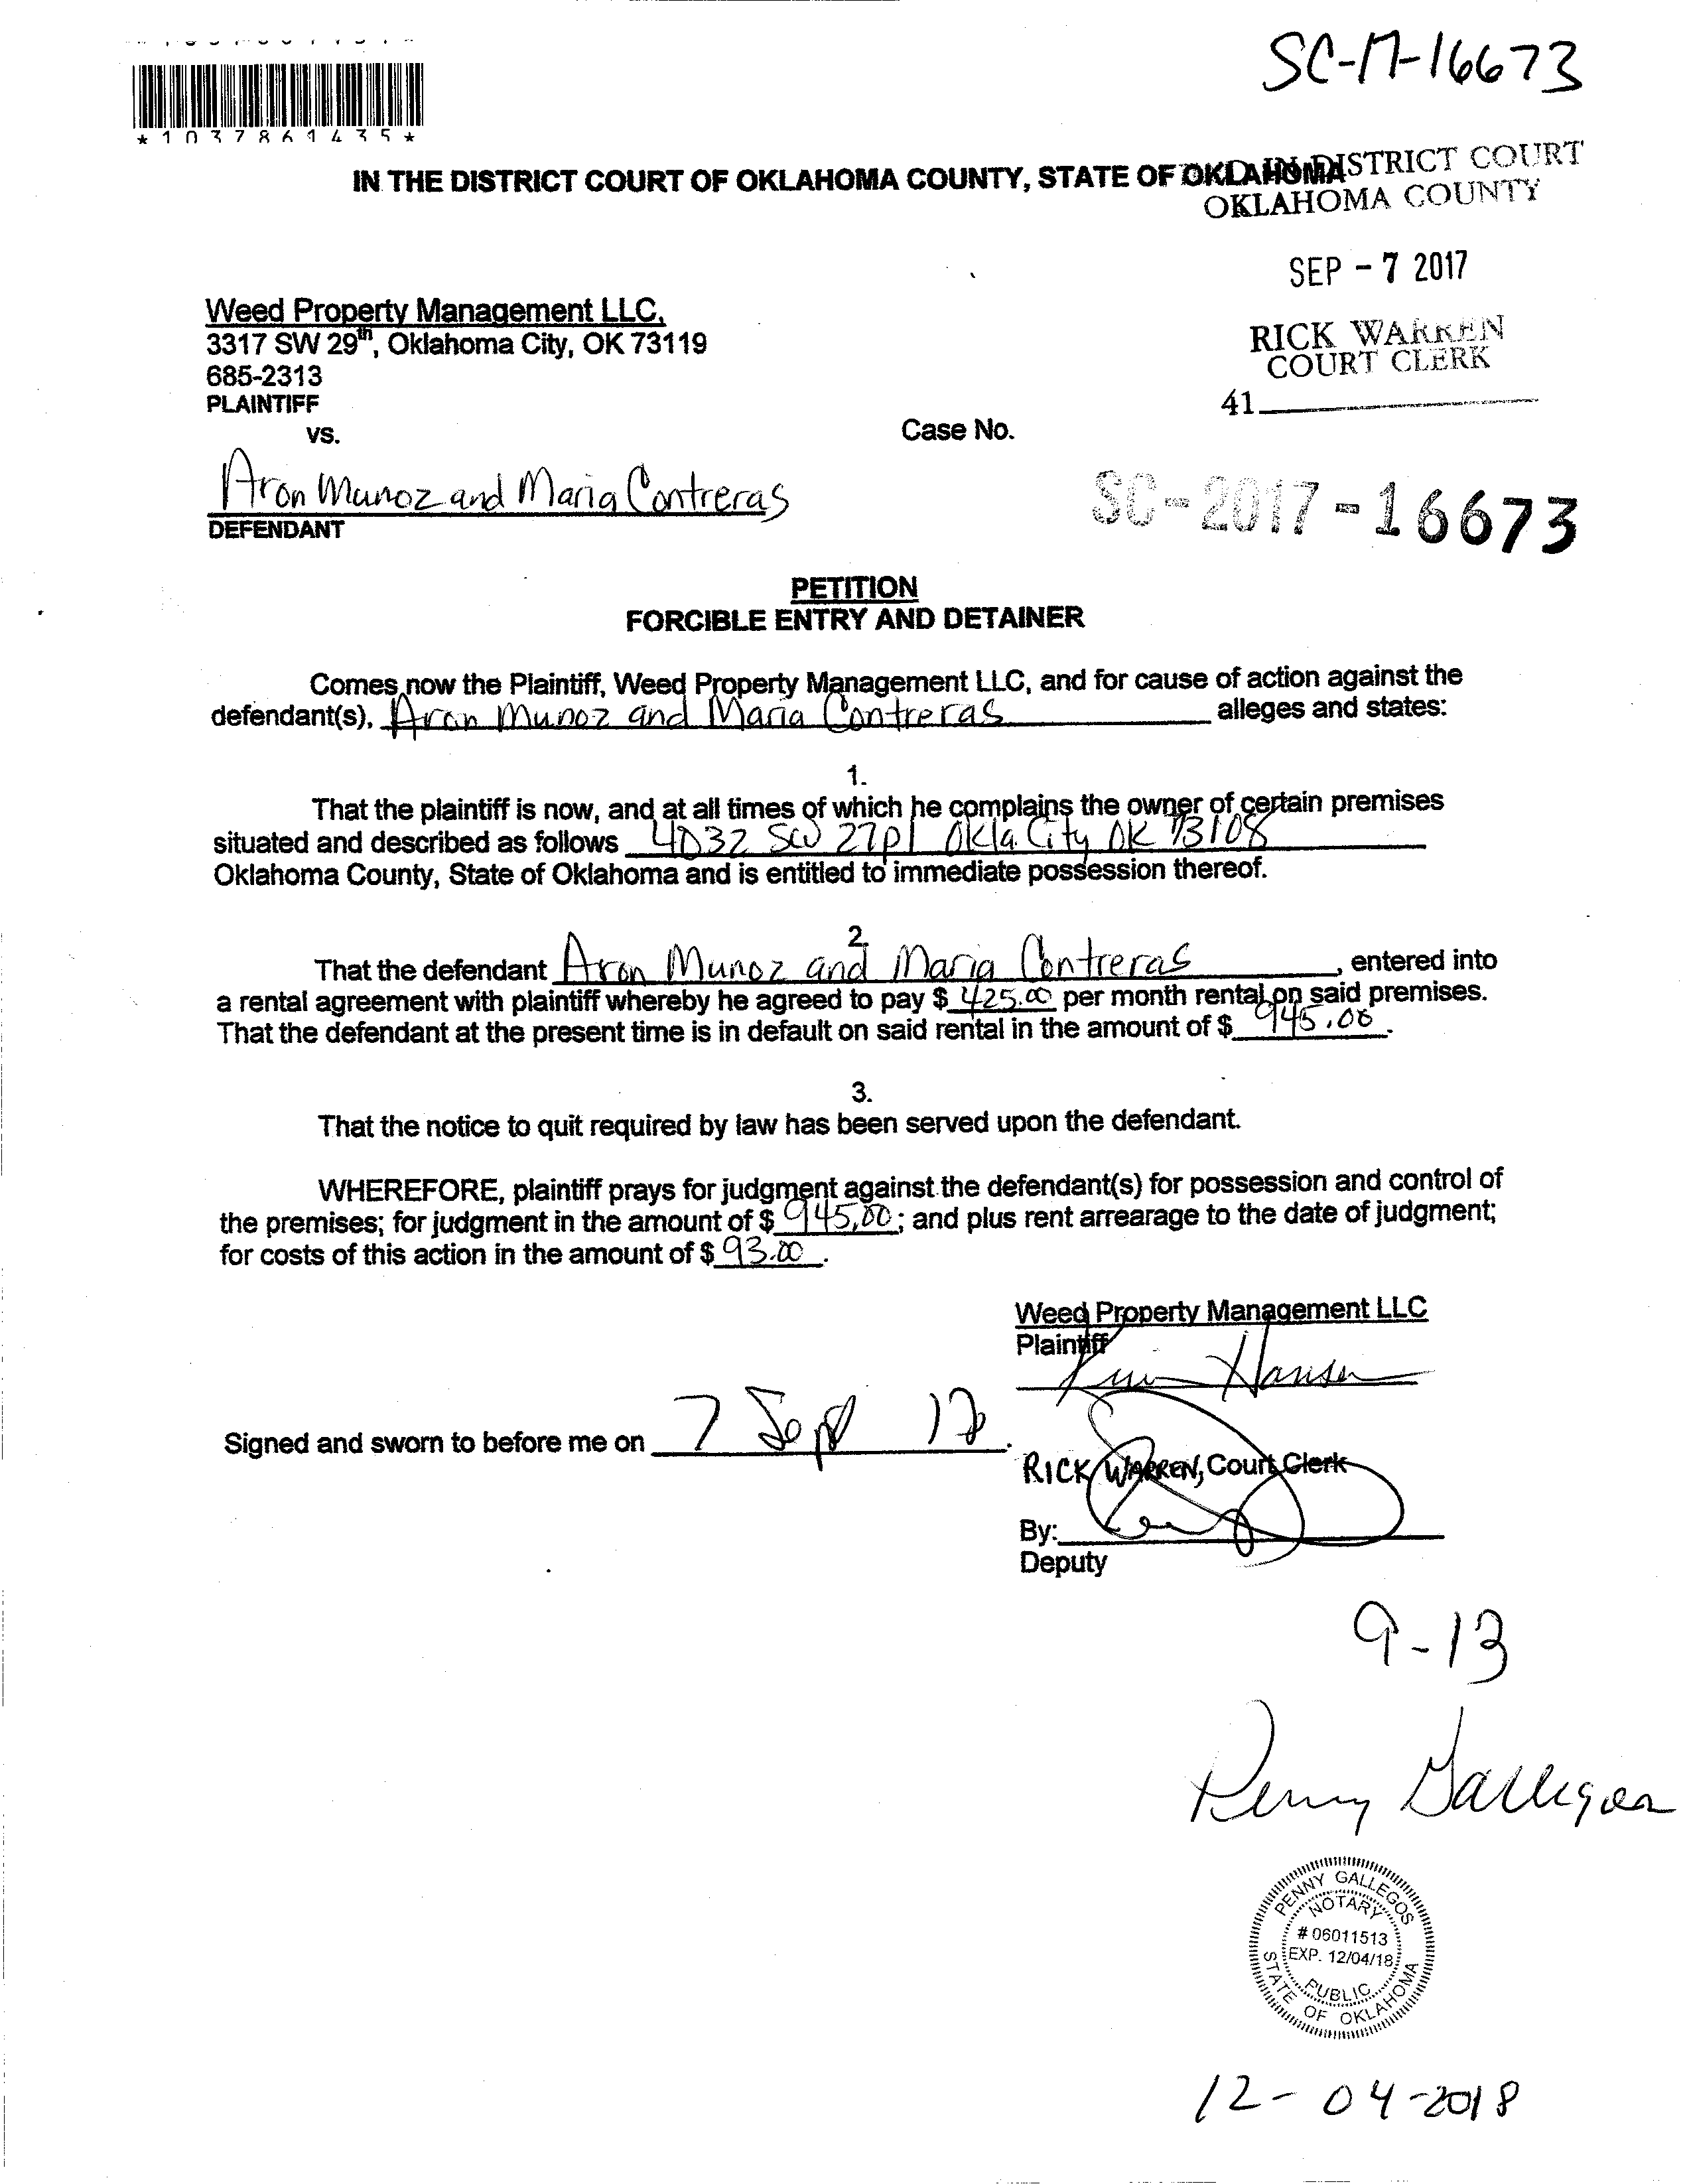 SC-17-16673
*1037861435*
IN THE DISTRICT COURT OF OKLAHOMA COUNTY, STATE OF OKLAHOMA
D IN DISTRICT COURT
OKLAHOMA COUNTY
SEP - 7 2017
RICK WARREN
COURT CLERK
41
Weed Property Management LLC,
3317 SW 29th, Oklahoma City, OK 73119
685-2313
PLAINTIFF
vs.
Case No.
Aron Munoz and Maria Contreras
DEFENDANT
SC-2017-16673
PETITION
FORCIBLE ENTRY AND DETAINER
Comes now the Plaintiff, Weed Property Management LLC, and for cause of action against the
defendant(s), Aron Munoz and Maria Contreras alleges and states:
1.
That the plaintiff is now, and at all times of which he complains the owner of certain premises
situated and described as follows 4032 SW 27pl Okla City OK 73108
Oklahoma County, State of Oklahoma and is entitled to immediate possession thereof.
2.
That the defendant Aron Munoz and Maria Contreras, entered into
a rental agreement with plaintiff whereby he agreed to pay $ 425.00 per month rental on said premises.
That the defendant at the present time is in default on said rental in the amount of $ 945.00.
3.
That the notice to quit required by law has been served upon the defendant.
WHEREFORE, plaintiff prays for judgment against the defendant(s) for possession and control of
the premises; for judgment in the amount of $ 945.00; and plus rent arrearage to the date of judgment;
for costs of this action in the amount of $ 93.00.
Weed Property Management LLC
Plaintiff
Hansen
Signed and sworn to before me on 7 Sept 17.
RICK WARREN, Court Clerk
By:
Deputy
9-13
Penny Gallegos
PENNY GALLEGOS
NOTARY
# 06011513
EXP. 12/04/18
PUBLIC
STATE OF OKLAHOMA
12-04-2018